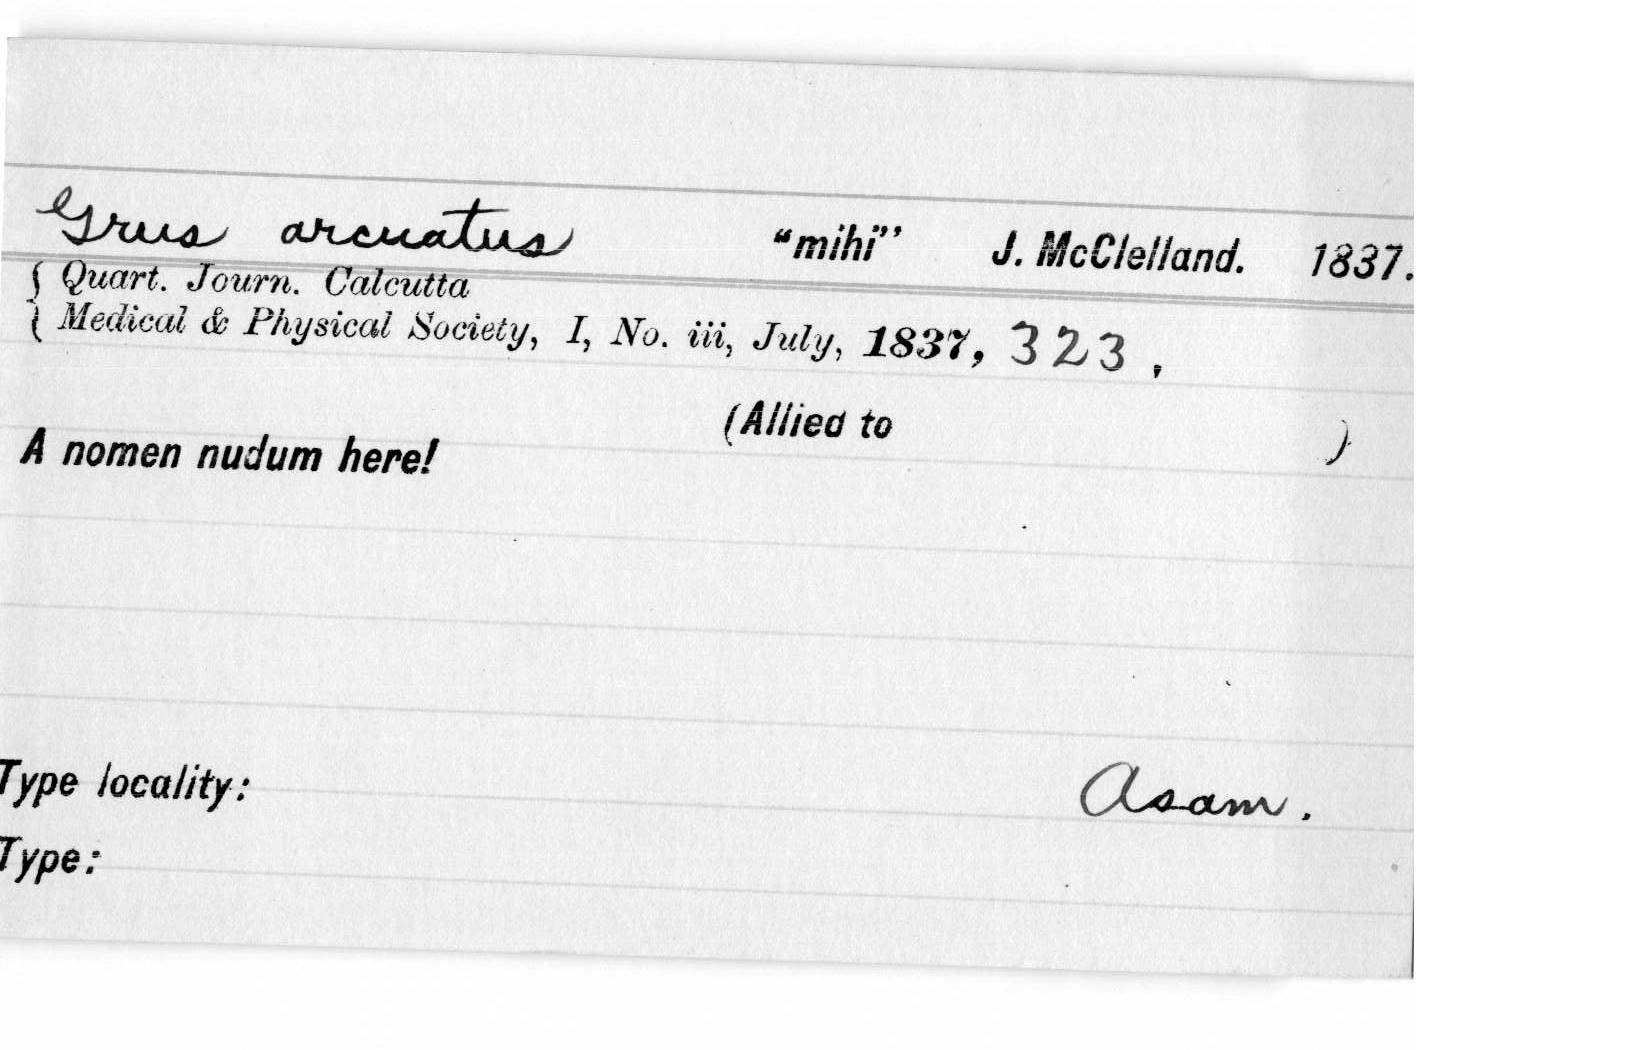 Grus arcuatus "mihi" J. McClelland. 1837.
{ Quart. Journ. Calcutta
{ Medical & Physical Society, I, No. iii, July, 1837, 323.
(Allied to )
A nomen nudum here!
Type locality: Asam.
Type: